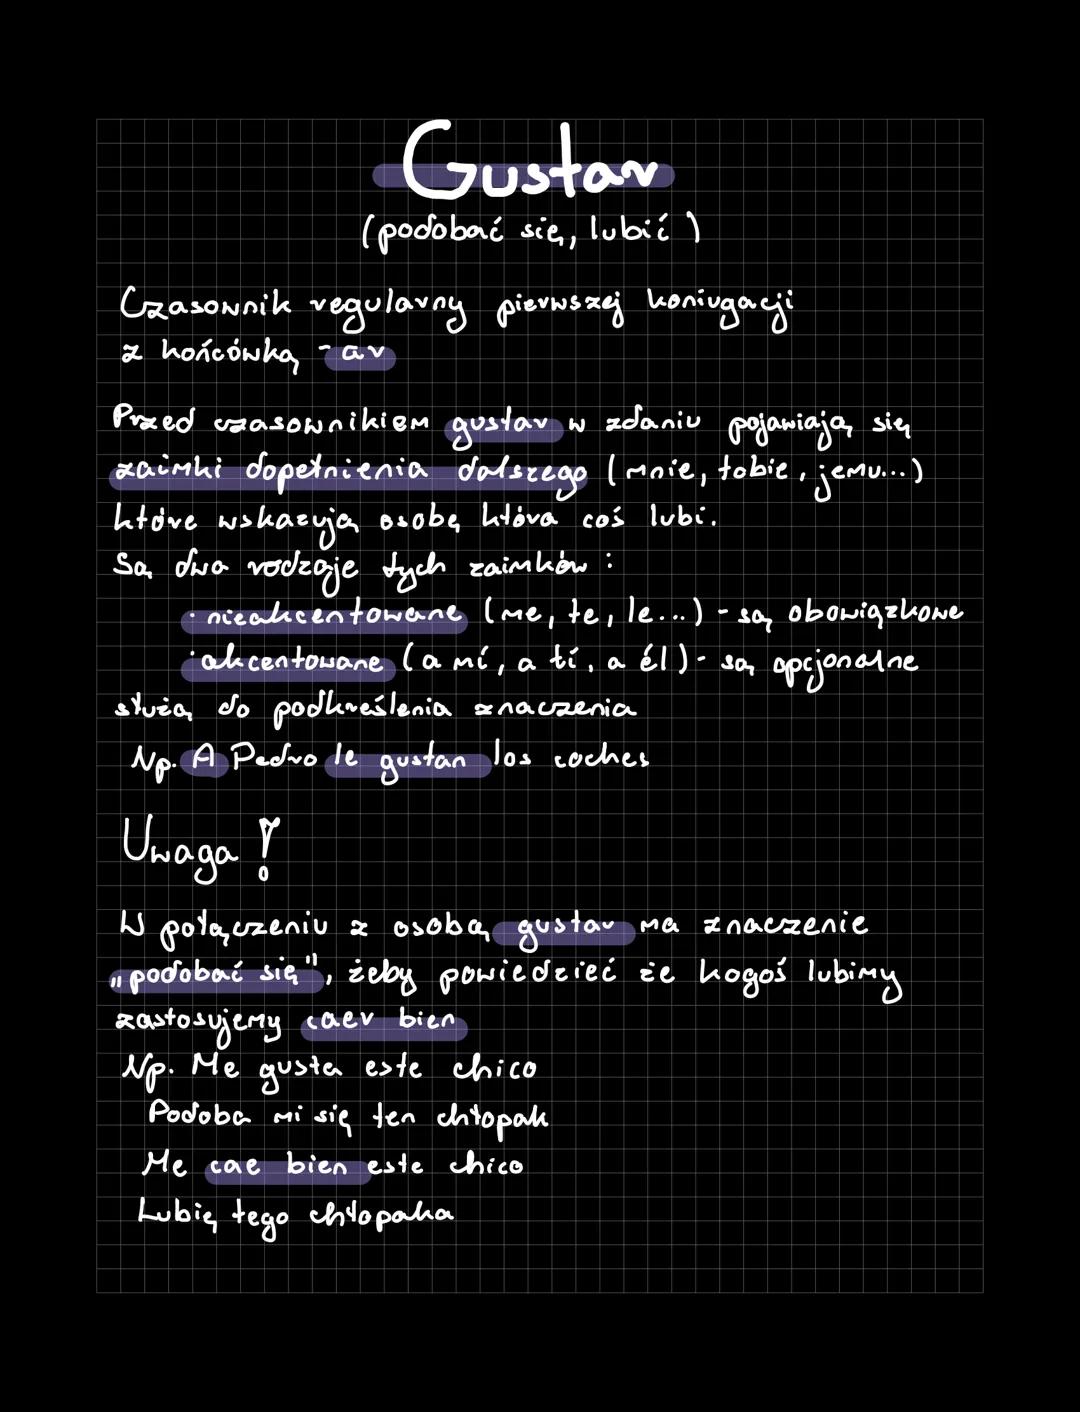 Gustar
(podobać się, lubić)
Czasownik regularny pierwszej koniugacji
z końcówką -ar
Przed czasownikiem gustar w zdaniu pojawiają się
zaimki dopełnienia dalszego (mnie, tobie, jemu...)
które wskazują osobę która coś lubi.
Są dwa rodzaje tych zaimków:
· nieakcentowane (me, te, le...) - są obowiązkowe
· akcentowane (a mí, a tí, a él) - są opcjonalne
służą do podkreślenia znaczenia
Np. A Pedro le gustan los coches
Uwaga!
W połączeniu z osobą gustar ma znaczenie
„podobać się", żeby powiedzieć że kogoś lubimy
zastosujemy caer bien
Np. Me gusta este chico
Podoba mi się ten chłopak
Me cae bien este chico
Lubię tego chłopaka